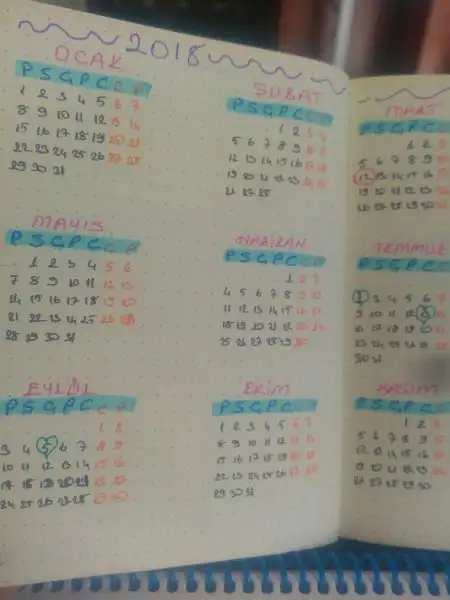 2018
OCAK
P S G P C C P
1 2 3 4 5 6 7
8 9 10 11 12 13 14
15 16 17 18 19 20 21
22 23 24 25 26 27 28
29 30 31
ŞUBAT
P S G P C C P
1 2 3 4
5 6 7 8 9 10 11
12 13 14 15 16 17 18
19 20 21 22 23 24 25
26 27 28
MART
P S G P C C
1 2
5 6 7 8 9 10
12 13 14 15 16 17
19 20 21 22 23 24
26 27 28 29 30 31
MAYIS
P S G P C C P
1 2 3 4 5 6
7 8 9 10 11 12 13
14 15 16 17 18 19 20
21 22 23 24 25 26 27
28 29 30 31
HAZİRAN
P S G P C C P
1 2 3
4 5 6 7 8 9 10
11 12 13 14 15 16 17
18 19 20 21 22 23 24
25 26 27 28 29 30
TEMMUZ
P S G P C C
EYLÜL
P S G P C C P
1 2
3 4 5 6 7 8 9
10 11 12 13 14 15 16
17 18 19 20 21 22 23
24 25 26 27 28 29 30
EKİM
P S G P C C P
1 2 3 4 5 6 7
8 9 10 11 12 13 14
15 16 17 18 19 20 21
22 23 24 25 26 27 28
29 30 31
KASIM
P S G P C C
1 2 3
5 6 7 8 9 10